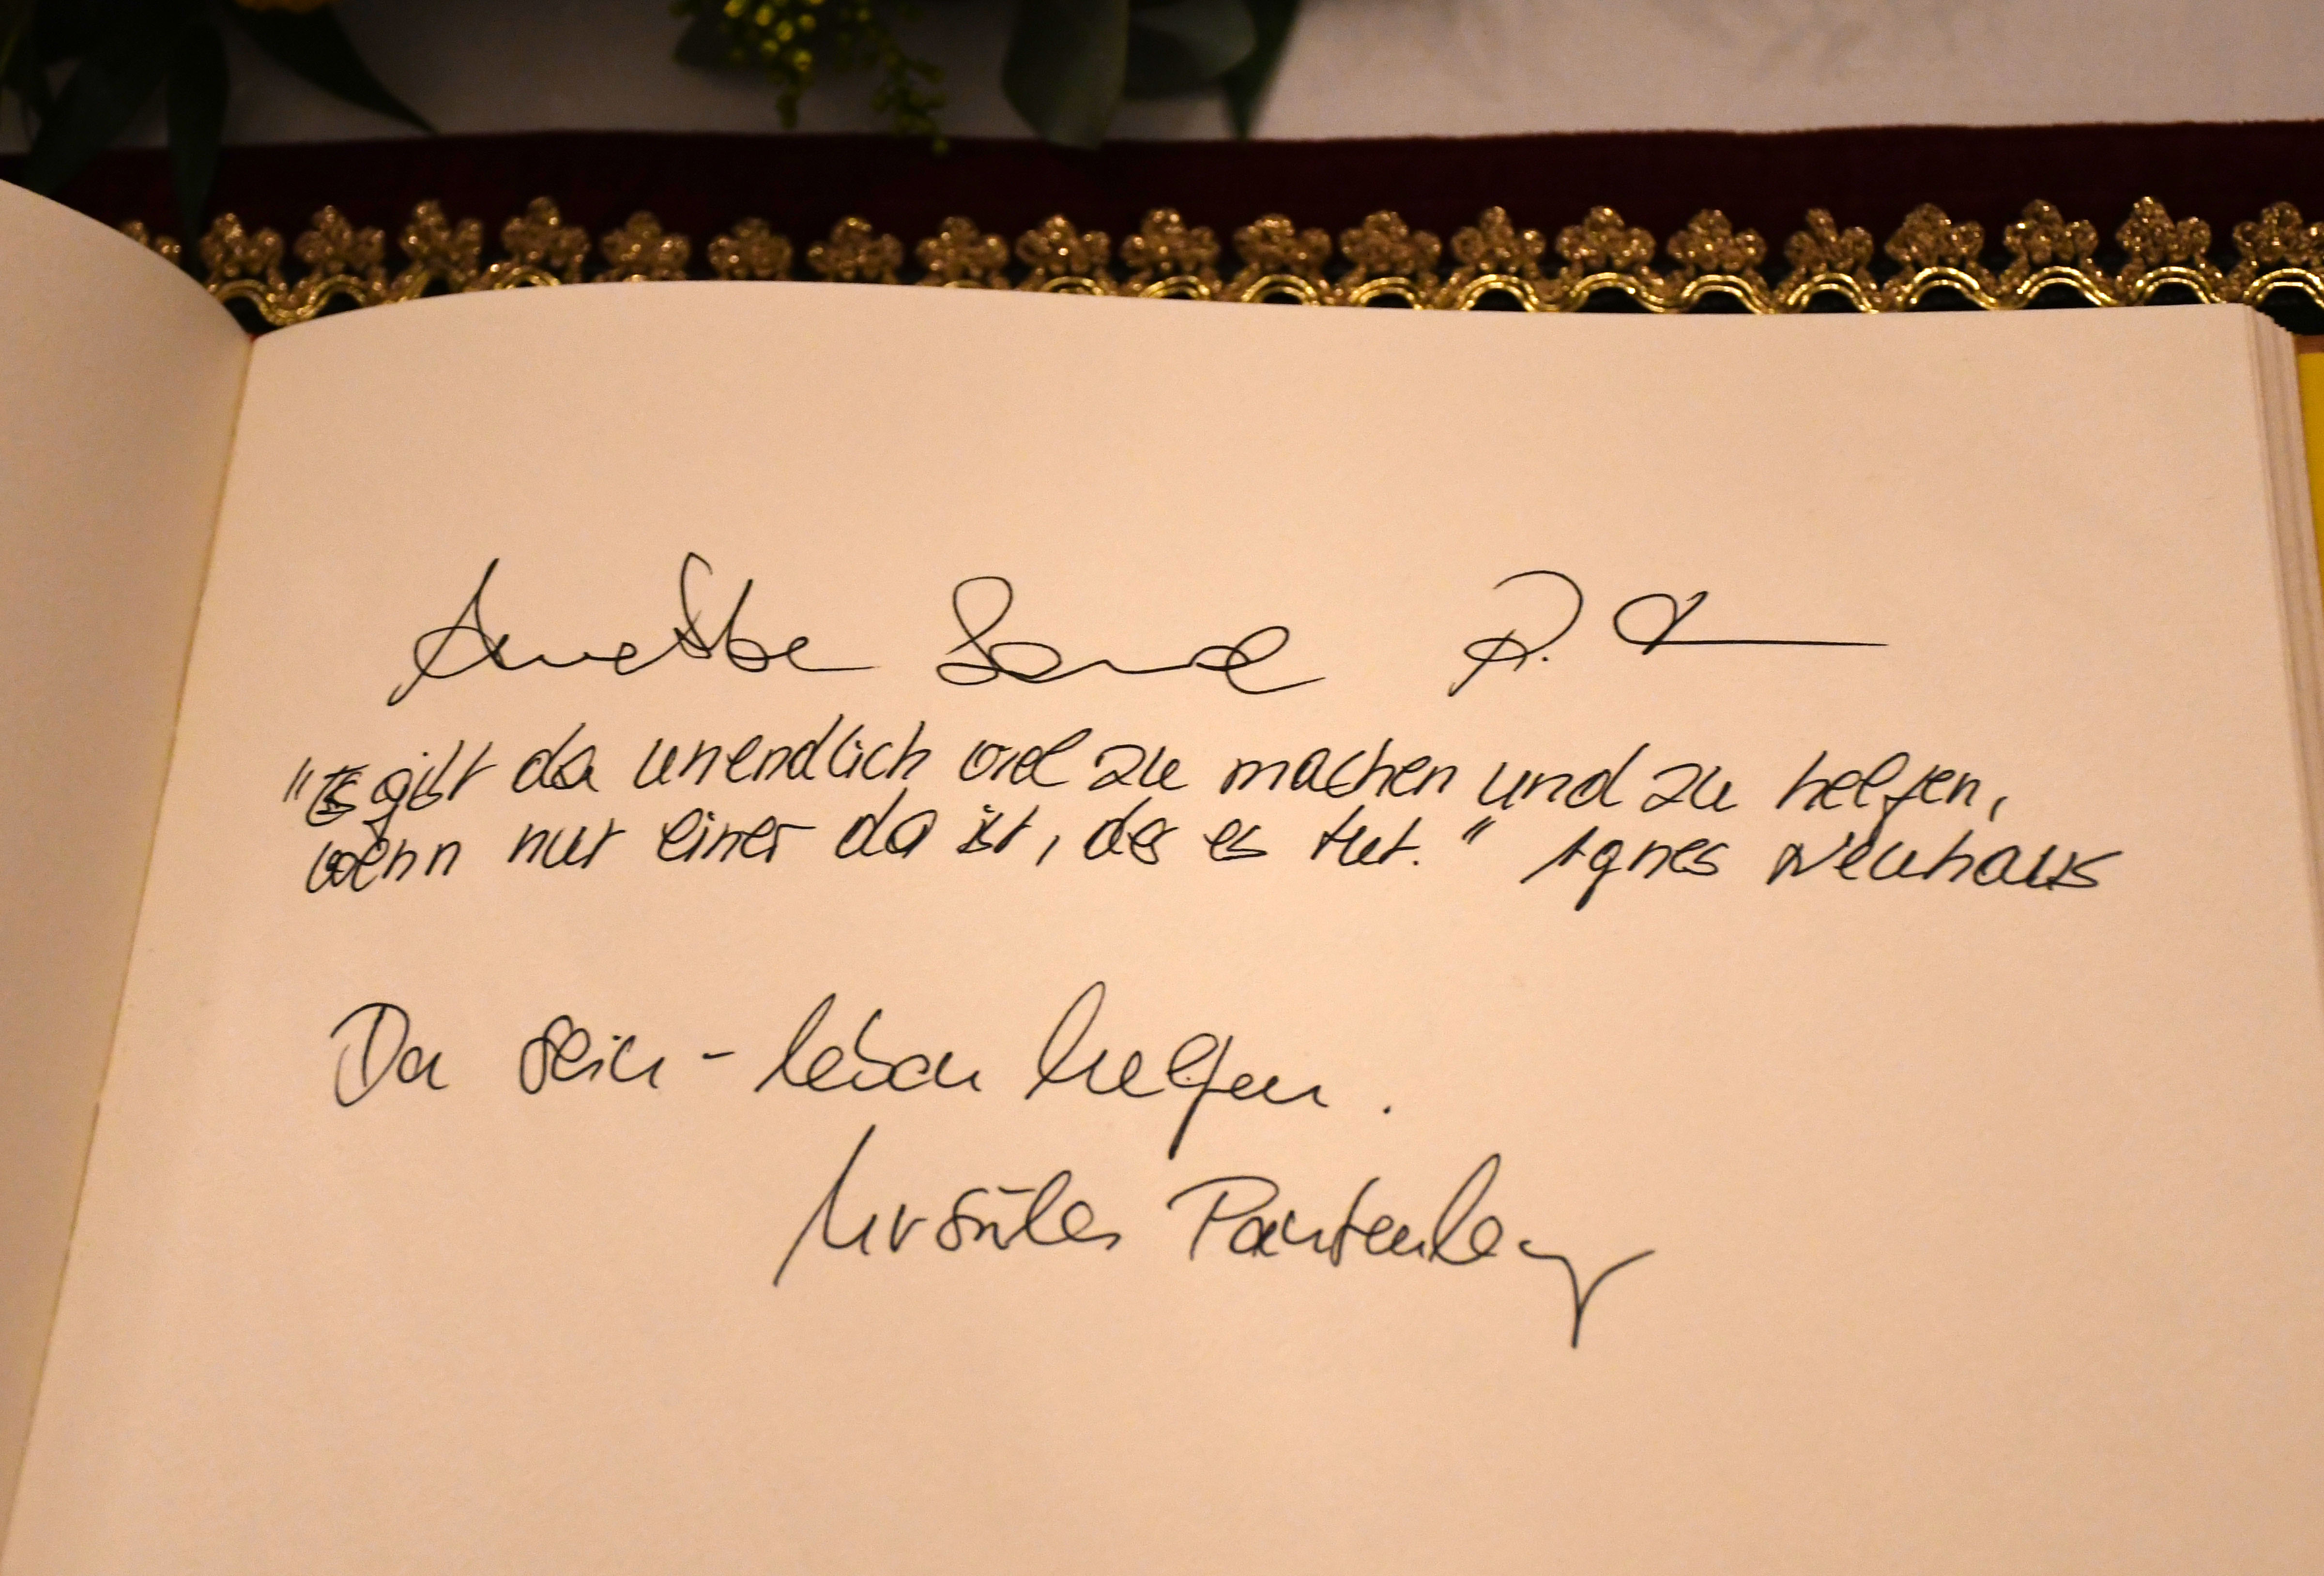 Annette
"Es gibt da unendlich viel zu machen und zu helfen,
wenn nur einer da ist, der es tut." Agnes Neuhaus
Da sein - leben helfen.
Ursula Pantenburg